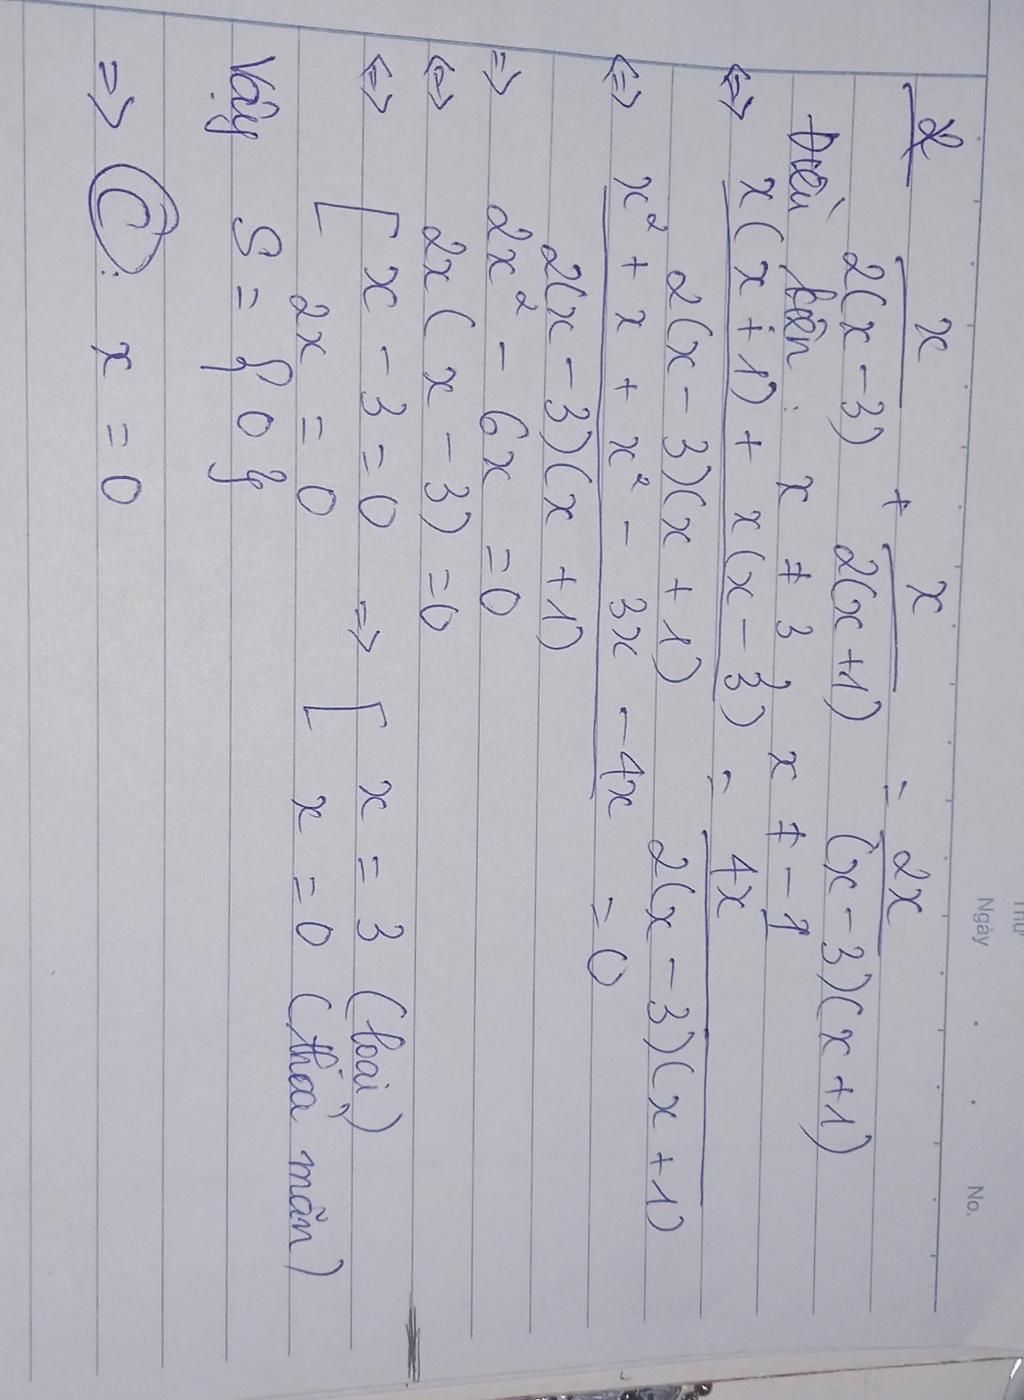 Thứ
Ngày
No.
2
x/2(x-3) + x/2(x+1) = 2x/(x-3)(x+1)
Điều kiện: x ≠ 3 x ≠ -1
<=> x(x+1) + x(x-3)/2(x-3)(x+1) = 4x/2(x-3)(x+1)
<=> x² + x + x² - 3x - 4x/2(x-3)(x+1) = 0
=> 2x² - 6x = 0
<=> 2x(x-3) = 0
<=> [ x - 3 = 0 => [ x = 3 (loại)
2x = 0 x = 0 (thỏa mãn)
Vậy S = {0}
=> C. x = 0